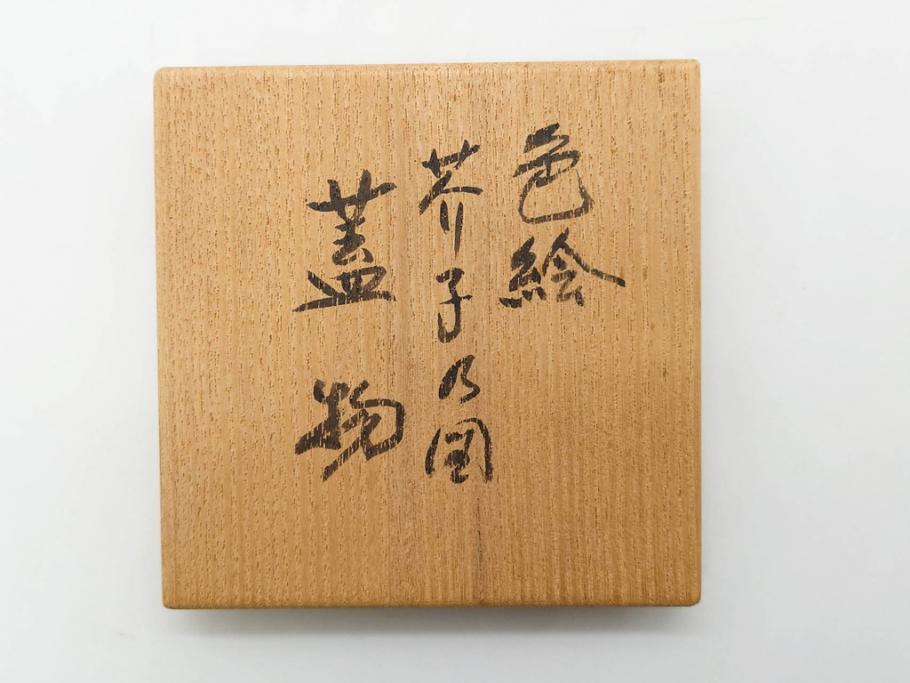 色絵
芥子乃図
蓋物